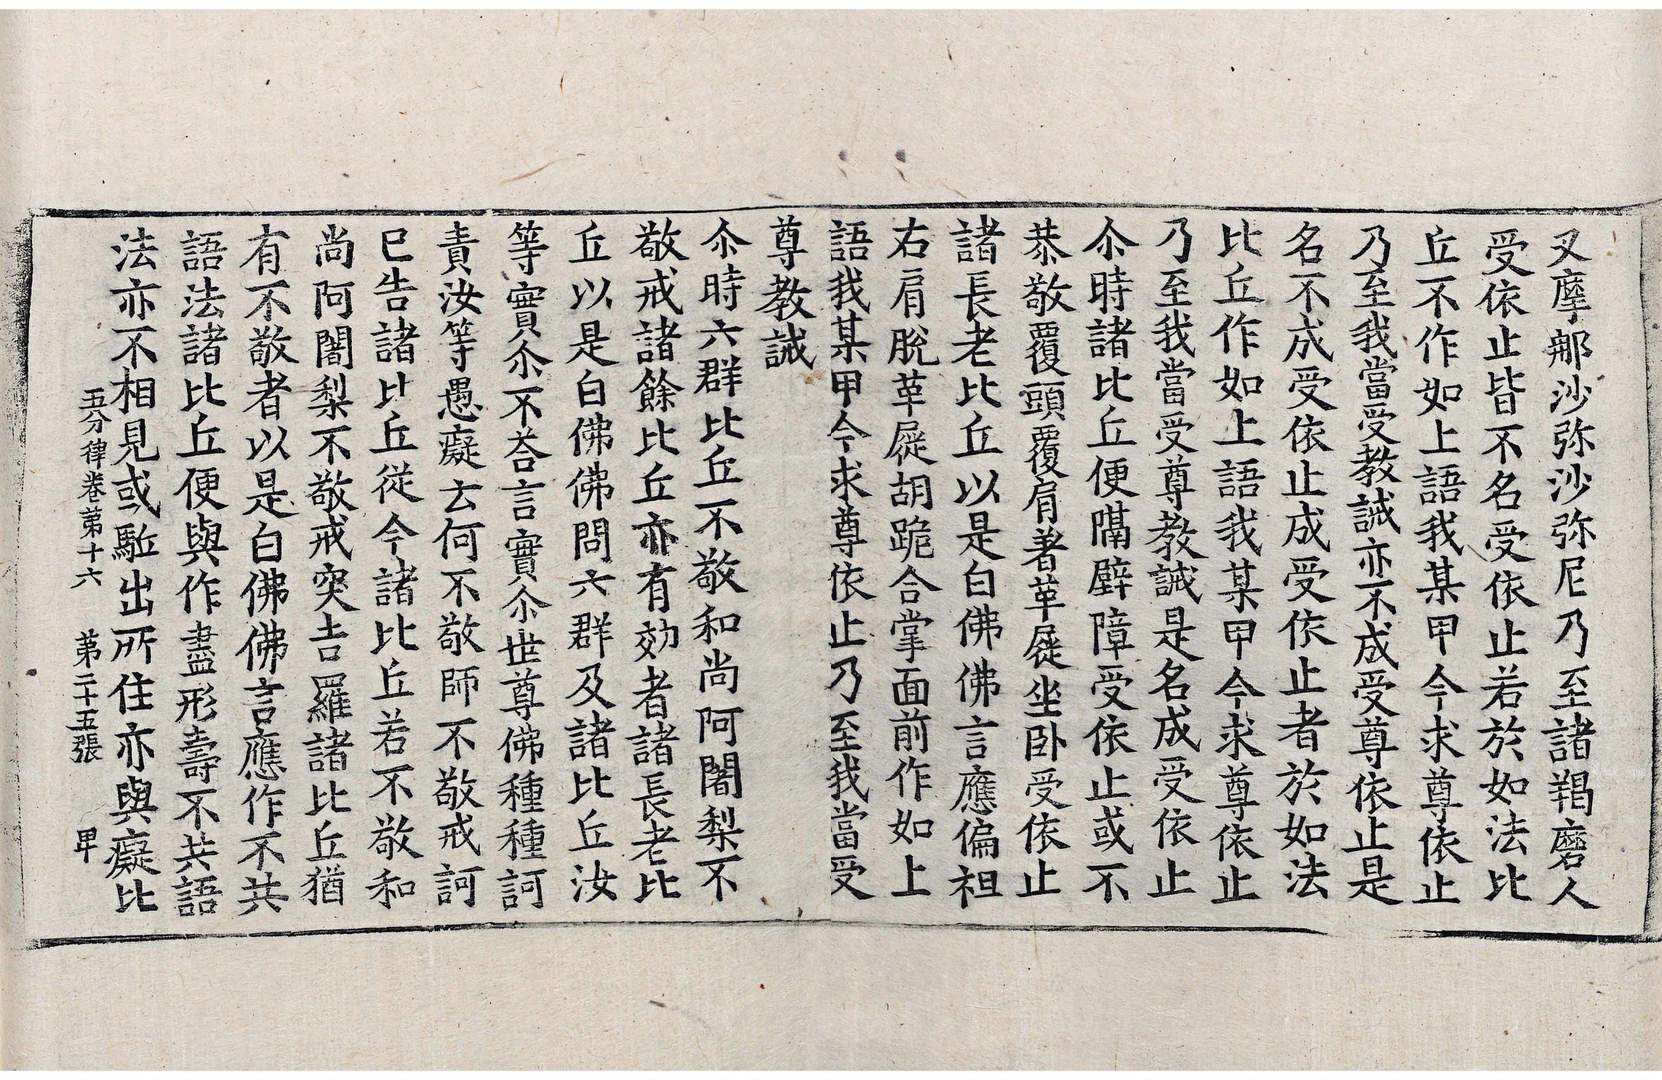 叉摩那沙弥沙弥尼乃至諸羯磨人
受依止皆不名受依止若於如法比
丘不作如上語我某甲今求尊依止
乃至我當受教誡亦不成受尊依止是
名不成受依止成受依止者於如法
比丘作如上語我某甲今求尊依止
乃至我當受尊教誡是名成受依止
尒時諸比丘便隔壁障受依止或不
恭敬覆頭覆肩著革屣坐卧受依止
諸長老比丘以是白佛佛言應偏袒
右肩脫革屣胡跪合掌面前作如上
語我某甲今求尊依止乃至我當受
尊教誡
尒時六群比丘不敬和尚阿闍梨不
敬戒諸餘比丘亦有効者諸長老比
丘以是白佛佛問六群及諸比丘汝
等實尒不荅言實尒世尊佛種種訶
責汝等愚癡云何不敬師不敬戒訶
已告諸比丘從今諸比丘若不敬和
尚阿闍梨不敬戒突吉羅諸比丘猶
有不敬者以是白佛佛言應作不共
語法諸比丘便與作盡形壽不共語
法亦不相見或駈出所住亦與癡比
五分律卷第十六 第二十五張 甲